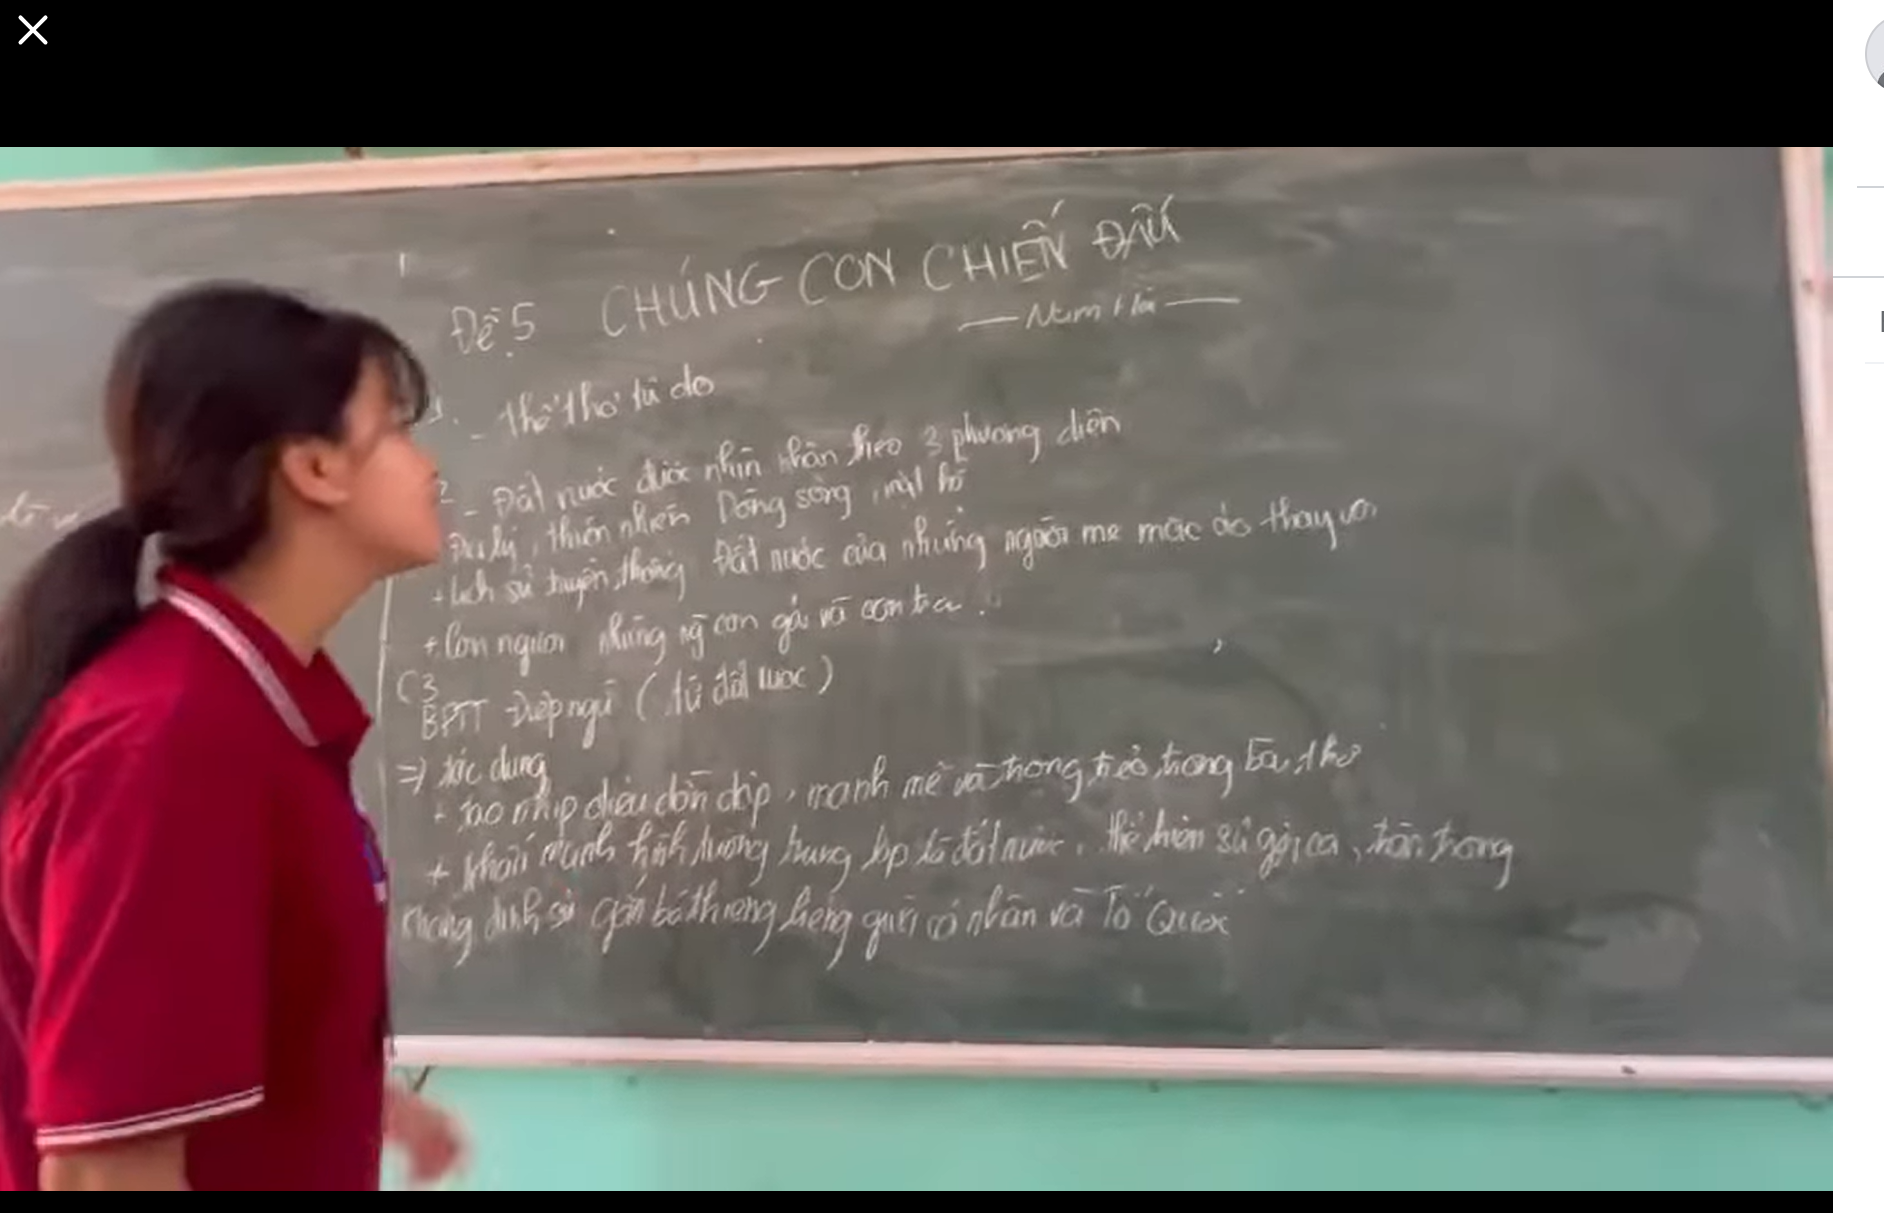 Đề 5 CHÚNG CON CHIẾN ĐẤU
Nam Hà
1. - thể thơ tự do
2 - Đất nước được nhìn nhận theo 3 phương diện
Địa lý, thiên nhiên Dòng sông, mặt hồ
+ lịch sử truyền thống Đất nước của những người mẹ mặc áo thay vai
+ Con người những ng con gái và con trai.
C3
BPTT điệp ngữ (từ đất nước)
=> tác dụng
+ tạo nhịp điệu dồn dập, mạnh mẽ và trong trẻo trong bài thơ
+ khơi mạnh hình tượng trung tâm là đất nước, thể hiện sự gợi ca, trân trọng
khẳng định sự gắn bó thiêng liêng giữa cá nhân và Tổ Quốc